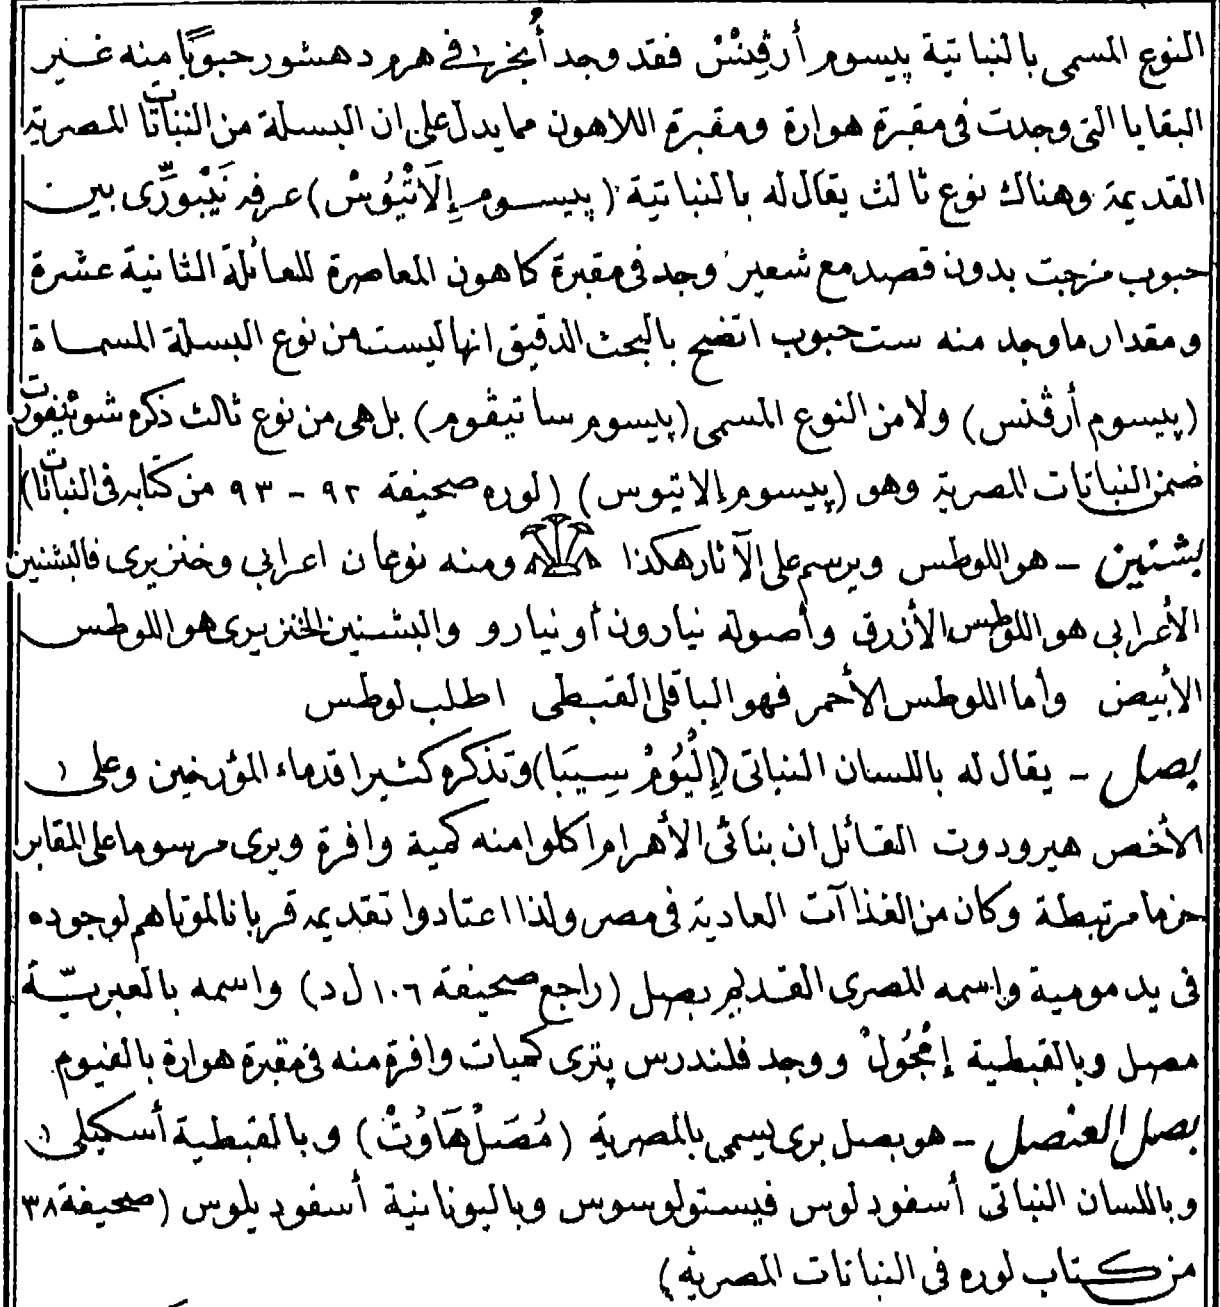 النوع المسمى بالنباتية پيسوم أرڤِنْسْ فقد وجد أُنجَر في هرم دهشور حبوبًا منه غير
البقايا التى وجدت فى مقبرة هوارة ومقبرة اللاهون مما يدل على ان البسلة من النباتات المصرية
القديمة وهناك نوع ثالث يقال له بالنباتية (پيسوم إِلَاتْيُوسْ) عرفه نَيْبورِّى بين
حبوب مزجت بدون قصد مع شعير وجد فى مقبرة كاهون المعاصرة للعائلة الثانية عشرة
ومقدار ما وجد منه ست حبوب اتضح بالبحث الدقيق انها ليست من نوع البسلة المسماة
(پيسوم أرڤنس) ولا من النوع المسمى (پيسوم ساتيڤوم) بل هى من نوع ثالث ذكره شوينفورت
ضمن النباتات المصرية وهو (پيسوم إلاتيوس) (لوره صحيفة ٩٢ - ٩٣ من كتابه فى النباتات)
بشنين - هو اللوطس ويرسم على الآثار هكذا ومنه نوعان اعرابى وخنزيرى فالبشنين
الأعرابى هو اللوطس الأزرق وأصوله نيارون أو نيارو والبشنين الخنزيرى هو اللوطس
الأبيض وأما اللوطس الأحمر فهو الباقلى القبطى اطلب لوطس
بصل - يقال له باللسان النباتى (إِلْيُومْ سِيبَا) وتذكره كثيرا قدماء المؤرخين وعلى
الأخص هيرودوت القائل ان بنائى الأهرام اكلوا منه كمية وافرة ويرى مرسوما على المقابر
حزما مرتبطة وكان من الغذاآت العادية فى مصر ولذا اعتادوا تقديمه قربانا لموتاهم لوجوده
فى يد مومية واسمه المصرى القديم بصل (راجع صحيفة ١٠٦ ل د) واسمه بالعبريّة
مصل وبالقبطية إِمْجُولْ ووجد فلندرس پترى كميات وافرة منه فى مقبرة هوارة بالفيوم
بصل العنصل - هو بصل برى يسمى بالمصرية (مُصَلْ هَاوُتْ) وبالقبطية أسكيلى
وباللسان النباتى أسفودلوس فيستولوسوس وباليونانية أسفوديلوس (صحيفة ٣٨
من كتاب لوره فى النباتات المصرية)